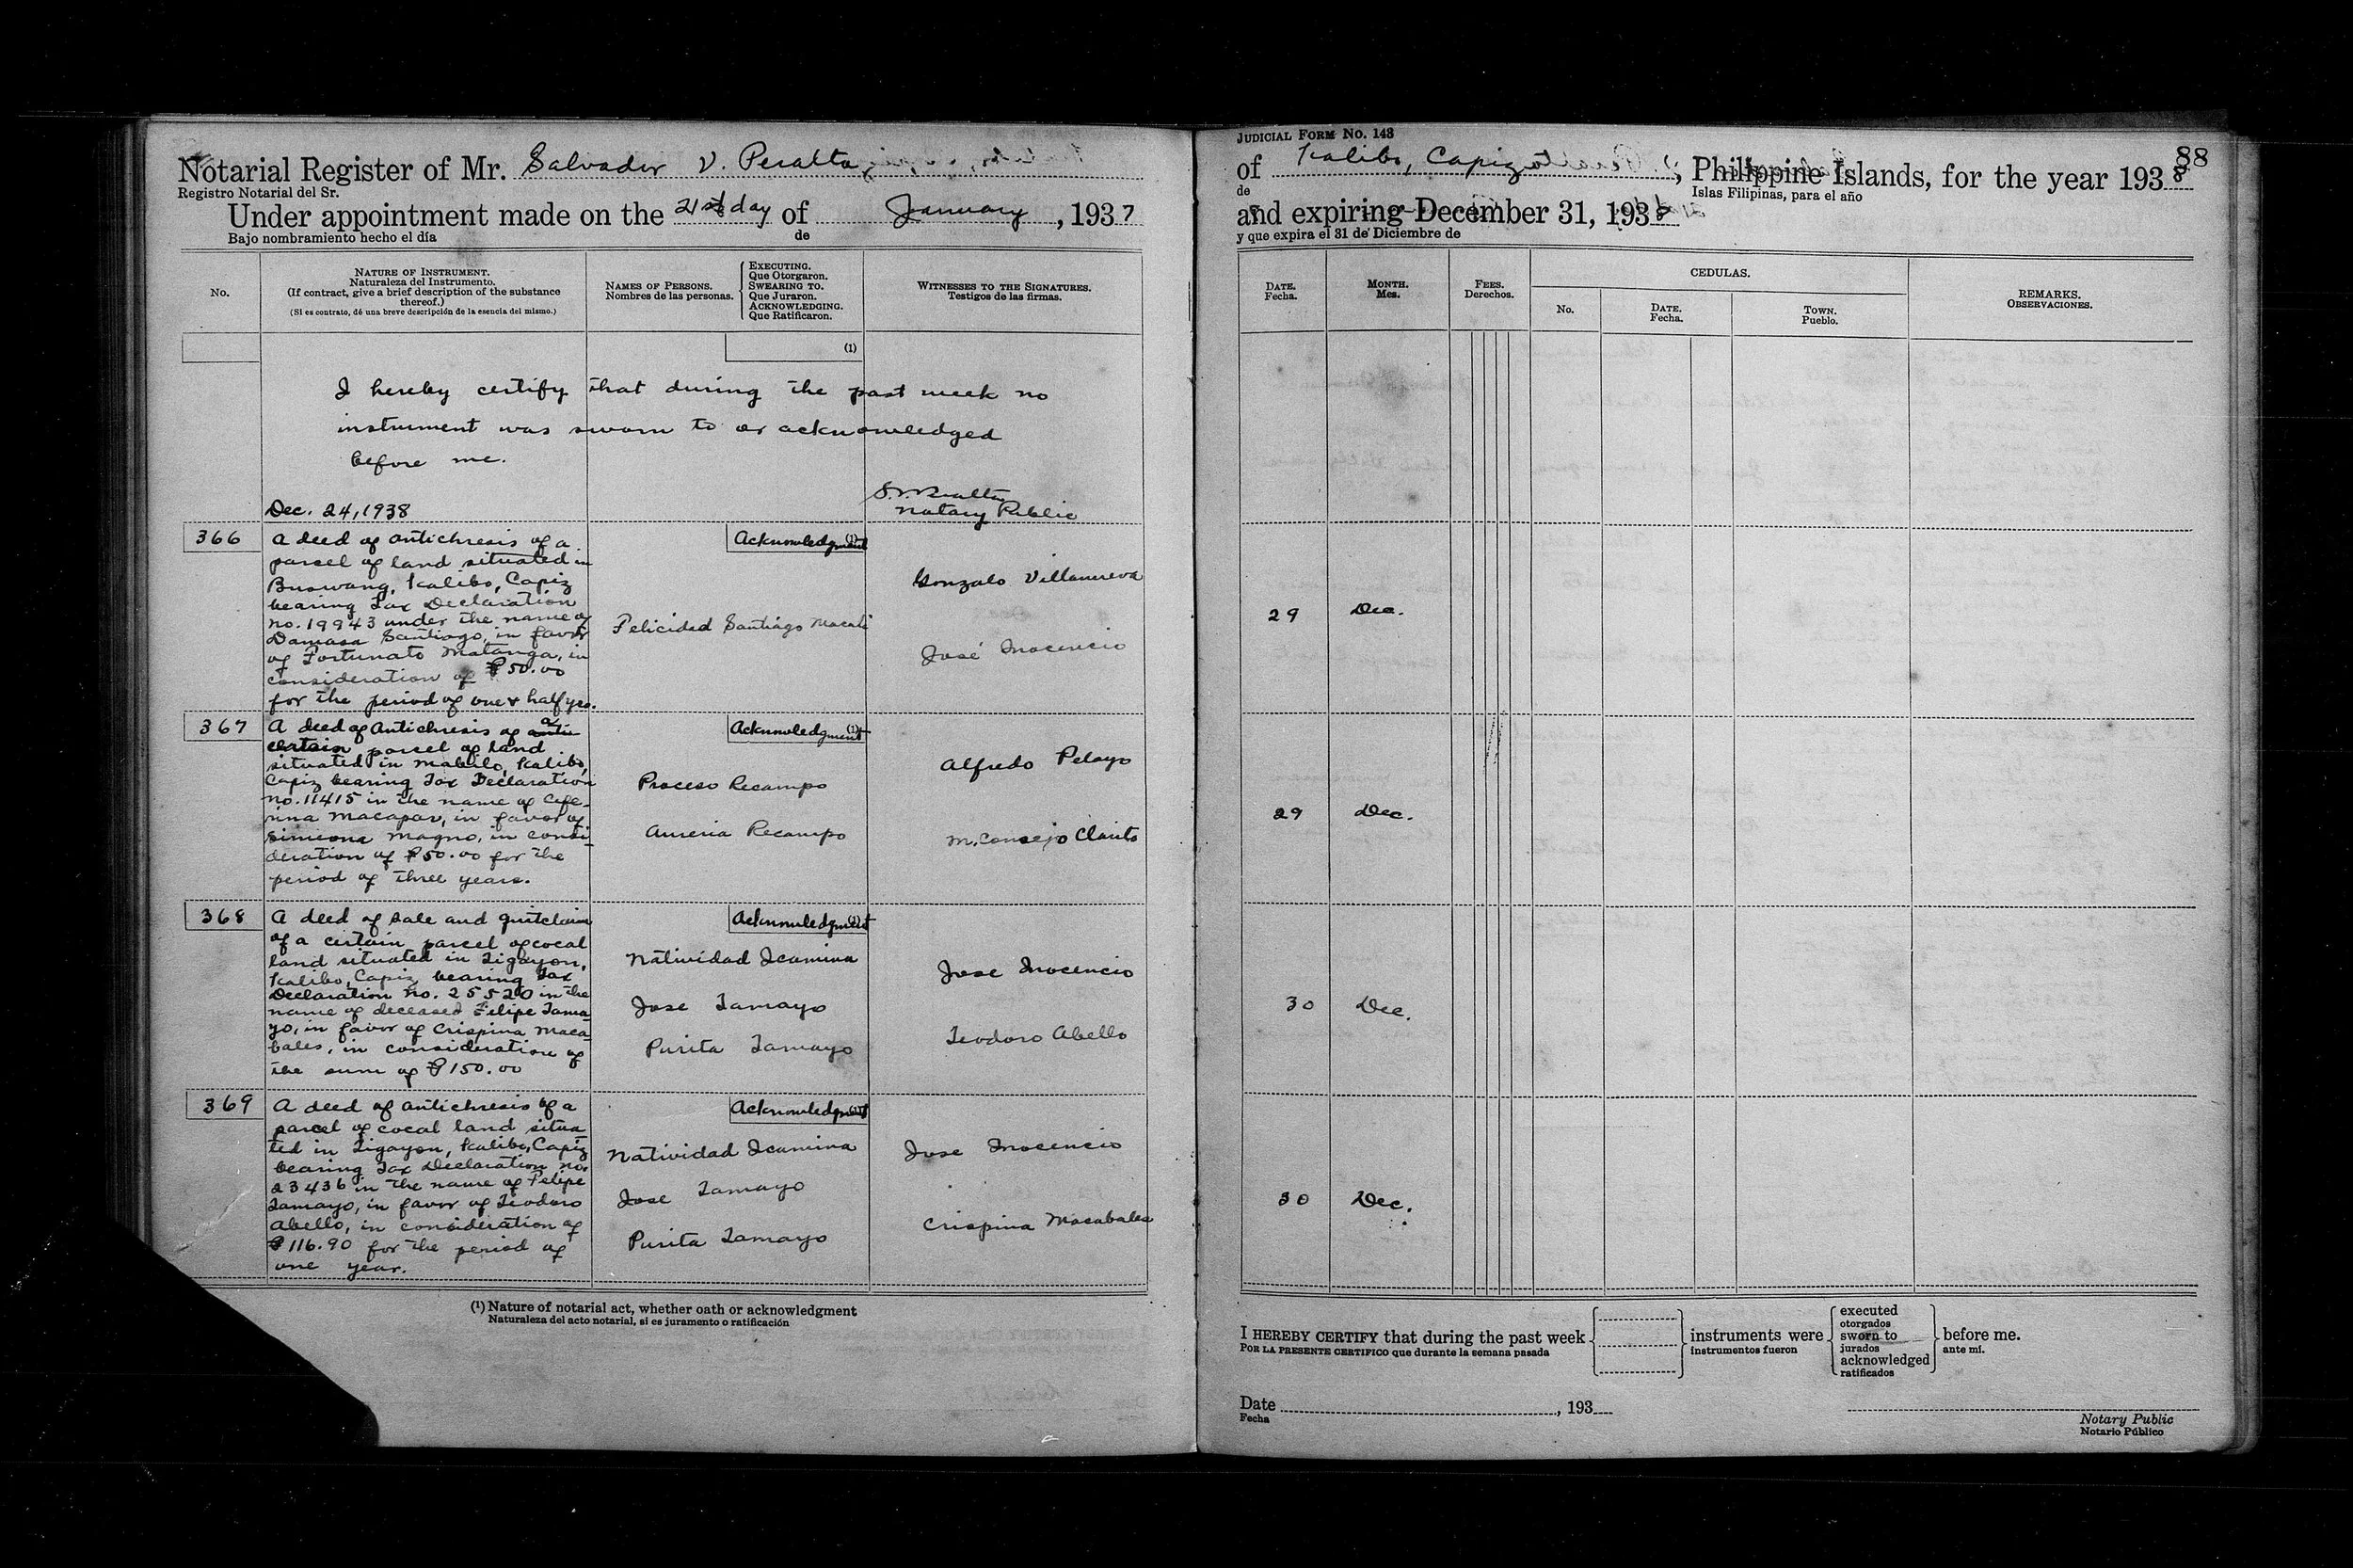 Notarial Register of Mr. Salvador V. Peralta
Registro Notarial del Sr.
Under appointment made on the 21st day of January, 1937
Bajo nombramiento hecho el día de
No.
NATURE OF INSTRUMENT.
Naturaleza del Instrumento.
(If contract, give a brief description of the substance
thereof.)
(Si es contrato, dé una breve descripción de la esencia del mismo.)
NAMES OF PERSONS.
Nombres de las personas.
EXECUTING.
Que Otorgaron.
SWEARING TO.
Que Juraron.
ACKNOWLEDGING.
Que Ratificaron.
WITNESSES TO THE SIGNATURES.
Testigos de las firmas.
(1)
I hereby certify that during the past week no
instrument was sworn to or acknowledged
before me.
S. V. Peralta
Dec. 24, 1938
Notary Public
366
A deed of antichresis of a
parcel of land situated in
Buswang, Kalibo, Capiz
bearing Tax Declaration
no. 19943 under the name of
Damasa Santiago, in favor
of Fortunato Matanga, in
consideration of ₱50.00
for the period of one & half yrs.
Acknowledgment
(1)
Felicidad Santiago Macali
Gonzalo Villanueva
José Inocencio
367
A deed of Antichresis of a
certain parcel of land
situated in Mabilo, Kalibo,
Capiz bearing Tax Declaration
no. 11415 in the name of Cefe-
rina Macapar, in favor of
Simeona Magno, in consi-
deration of ₱50.00 for the
period of three years.
Acknowledgment
(1)
Proceso Recampo
Aureria Recampo
Alfredo Pelayo
M. Consejo Clarito
368
A deed of sale and quitclaim
of a certain parcel of cocal
land situated in Tigayon,
Kalibo, Capiz, bearing Tax
Declaration No. 25520 in the
name of deceased Felipe Tama-
yo, in favor of Crispina Maca-
bales, in consideration of
the sum of ₱150.00
Acknowledgment
(1)
Natividad Icamina
Jose Tamayo
Purita Tamayo
Jose Inocencio
Teodoro Abello
369
A deed of antichresis of a
parcel of cocal land situa
ted in Tigayon, Kalibo, Capiz
bearing Tax Declaration no.
23436 in the name of Felipe
Tamayo, in favor of Teodoro
Abello, in consideration of
₱116.90 for the period of
one year.
Acknowledgment
(1)
Natividad Icamina
Jose Tamayo
Purita Tamayo
Jose Inocencio
Crispina Macabales
(1) Nature of notarial act, whether oath or acknowledgment
Naturaleza del acto notarial, si es juramento o ratificación
JUDICIAL FORM NO. 143
88
of Kalibo, Capiz, Philippine Islands, for the year 1938
de Islas Filipinas, para el año
and expiring December 31, 1938
y que expira el 31 de Diciembre de
DATE.
Fecha.
MONTH.
Mes.
FEES.
Derechos.
CEDULAS.
No.
DATE.
Fecha.
TOWN.
Pueblo.
REMARKS.
OBSERVACIONES.
29 Dec.
29 Dec.
30 Dec.
30 Dec.
I HEREBY CERTIFY that during the past week instruments were before me.
POR LA PRESENTE CERTIFICO que durante la semana pasada instrumentos fueron ante mí.
executed
otorgados
sworn to
jurados
acknowledged
ratificados
Date , 193
Fecha
Notary Public
Notario Público